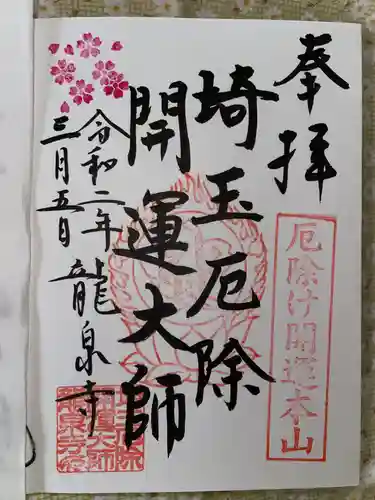 奉拝
厄除け開運本山
埼玉厄除
開運大師
令和二年
三月五日
龍泉寺